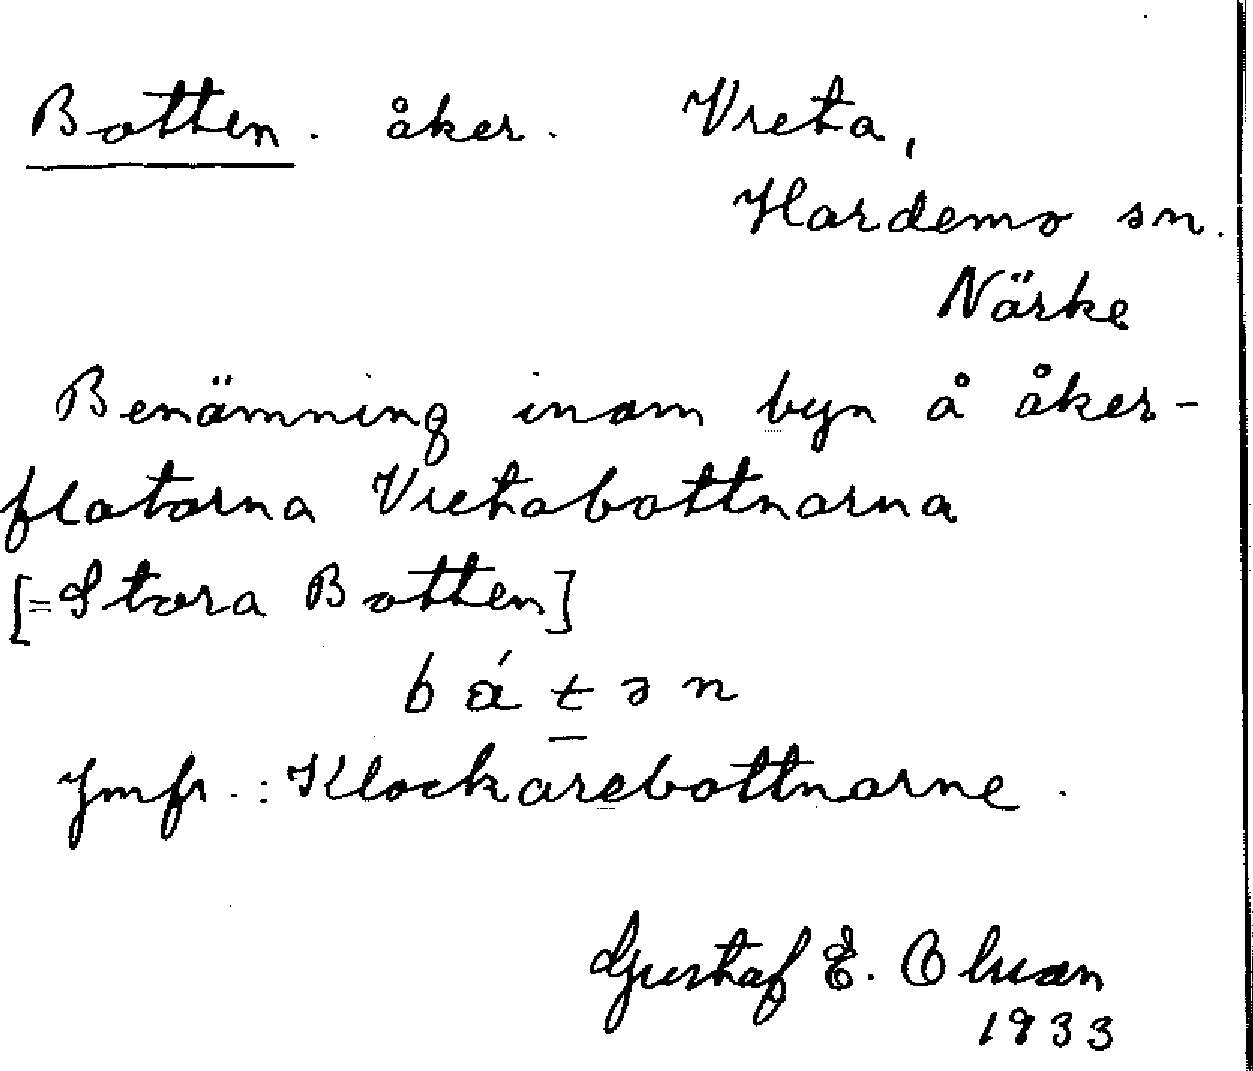 Botten. åker. Vreta,
Hardemo sn.
Närke
Benämning inom byn å åker-
flatorna Vretabottnarna
[=Stora Botten]
bátən
Jmfr.: Klockarebottnarne.
Gustaf E. Olsson
1933